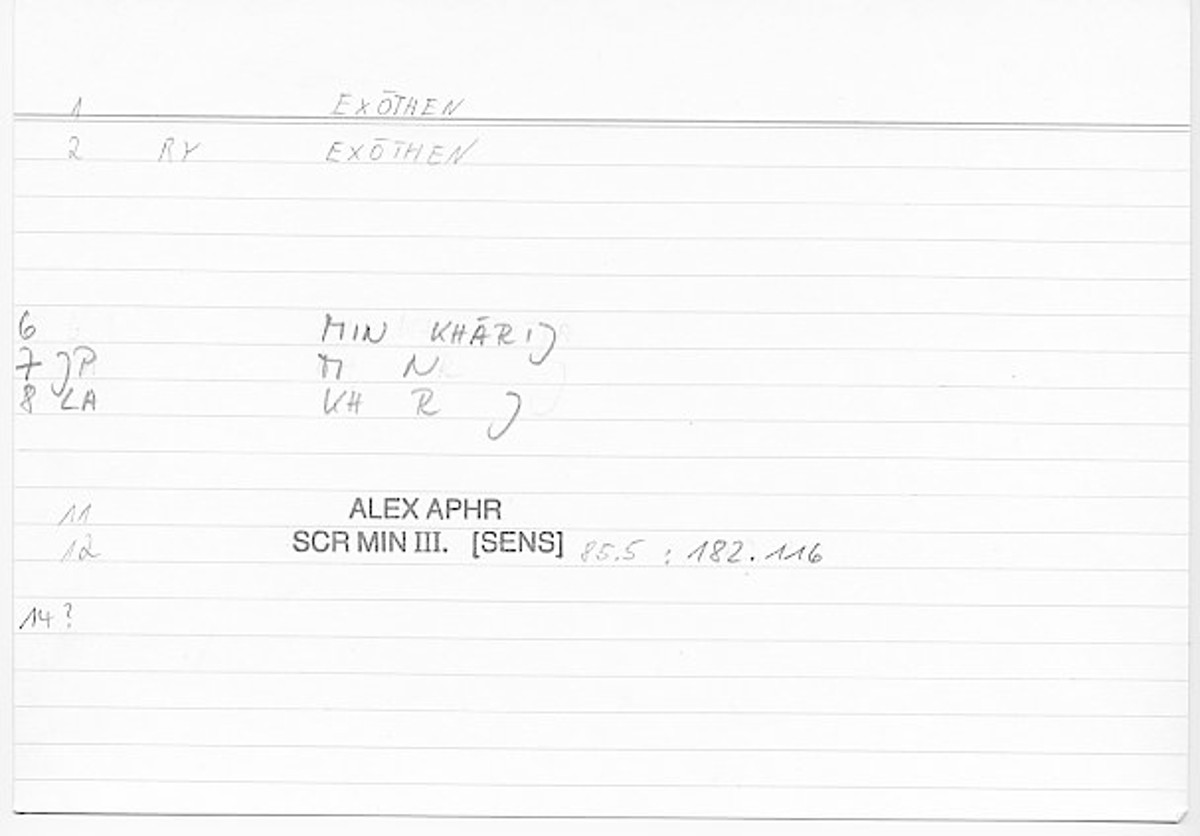 1 EXŌTHEN
2 RY EXŌTHEN
6 MIN KHĀRIJ
7 JP M N
8 LA KH R J
11 ALEX APHR
12 SCR MIN III. [SENS] 85.5 : 182.116
14?